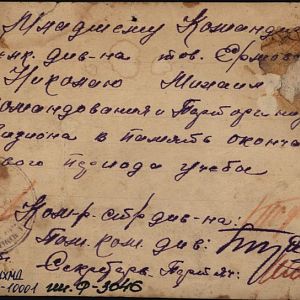 Младшему Команди
див-на тов. Ермо
Николаю Михаил
командования и Парторгани
визиона в память оконча
вого периода учебы
Ком-р стр див-на:
Пом. ком. див:
Секретарь Парт
-10001 ин. Ф-3046